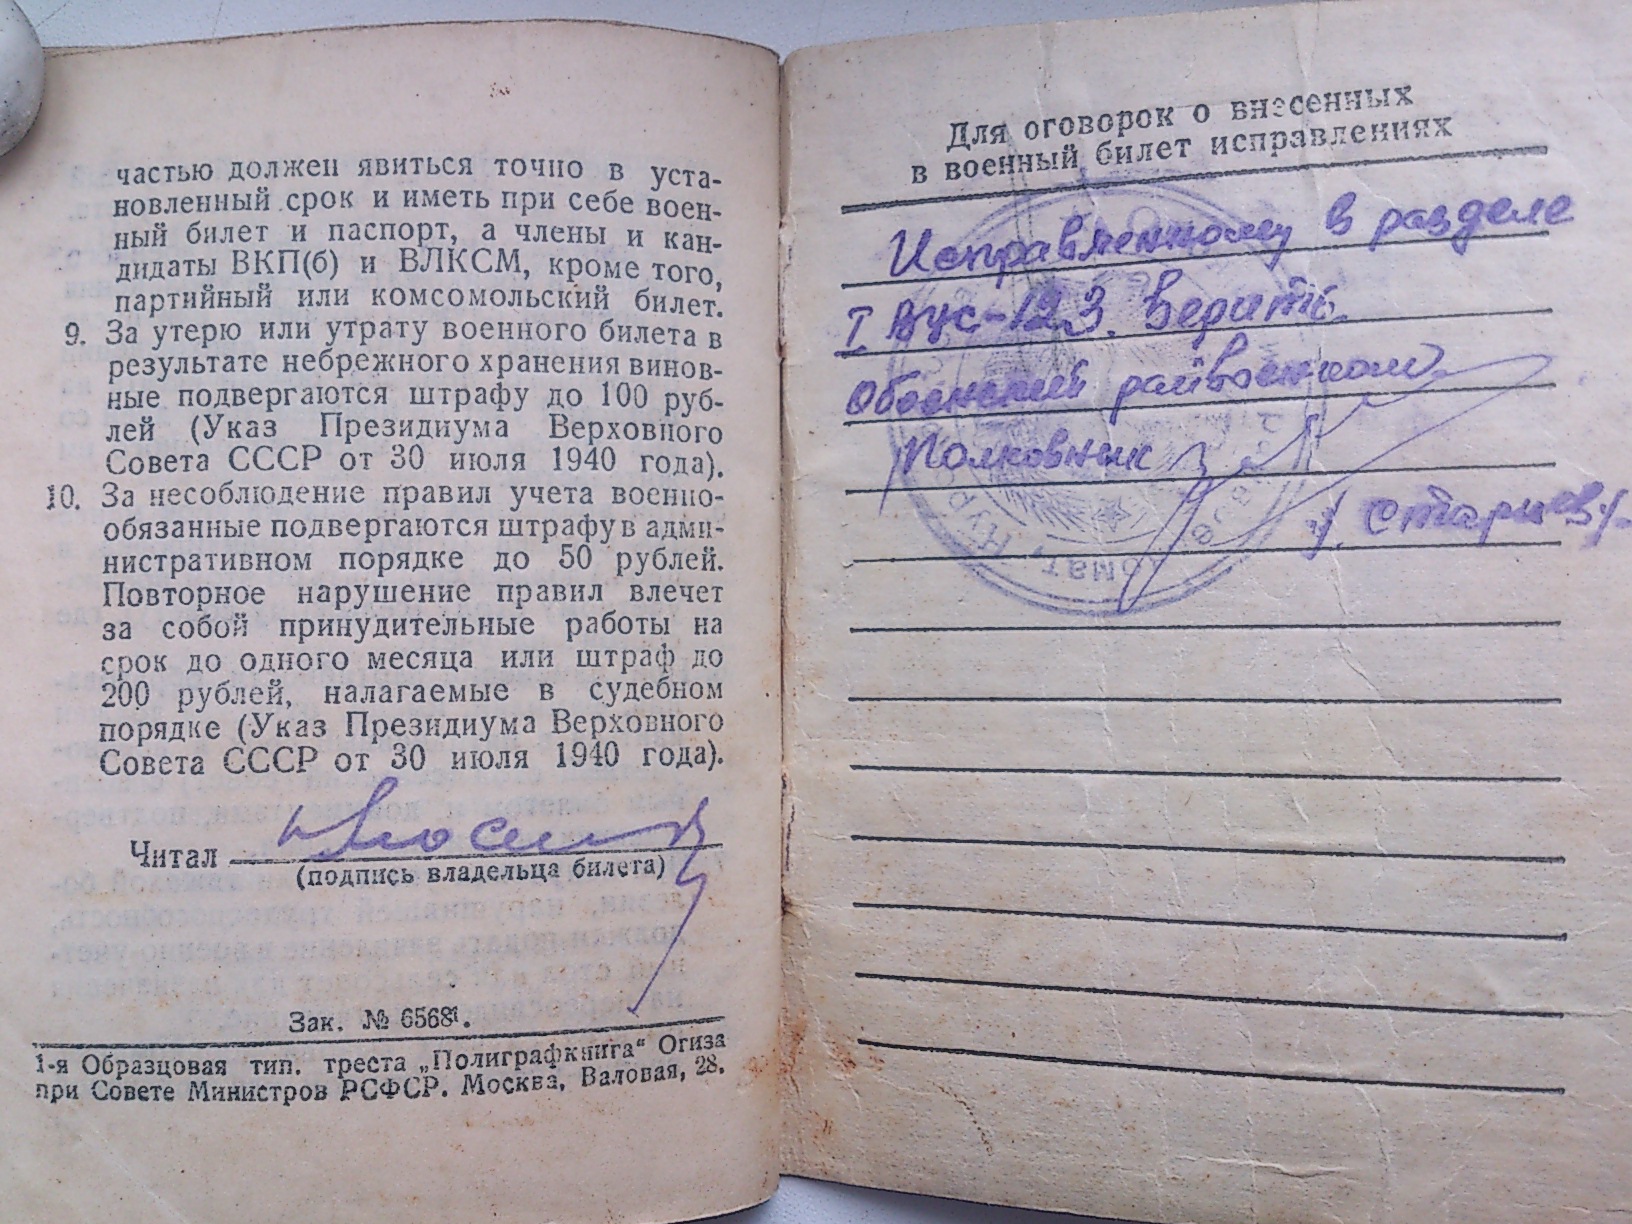 частью должен явиться точно в уста-
новленный срок и иметь при себе воен-
ный билет и паспорт, а члены и кан-
дидаты ВКП(б) и ВЛКСМ, кроме того,
партийный или комсомольский билет.
9. За утерю или утрату военного билета в
результате небрежного хранения винов-
ные подвергаются штрафу до 100 руб-
лей (Указ Президиума Верховного
Совета СССР от 30 июля 1940 года).
10. За несоблюдение правил учета военно-
обязанные подвергаются штрафу в адми-
нистративном порядке до 50 рублей.
Повторное нарушение правил влечет
за собой принудительные работы на
срок до одного месяца или штраф до
200 рублей, налагаемые в судебном
порядке (Указ Президиума Верховного
Совета СССР от 30 июля 1940 года).
Читал
(подпись владельца билета)
Зак. № 65681.
1-я Образцовая тип. треста „Полиграфкнига“ Огиза
при Совете Министров РСФСР. Москва, Валовая, 28.
Для оговорок о внесенных
в военный билет исправлениях
Исправленному в разделе
I ВУС-123. Верить.
Обоянский райвоенком
Полковник
/. Старцев/.